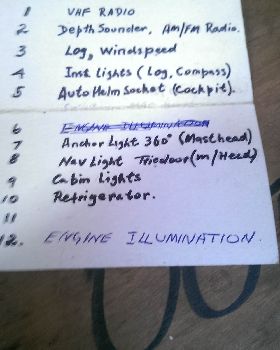 1 VHF RADIO
2 Depth Sounder, AM/FM Radio.
3 Log, Windspeed
4 Inst Lights (Log, Compass)
5 Auto Helm Socket (Cockpit).
6 ENGINE ILLUMINATION
7 Anchor Light 360° (Masthead)
8 Nav Light Tricolour (m/Head)
9 Cabin Lights
10 Refrigerator.
11
12. ENGINE ILLUMINATION.